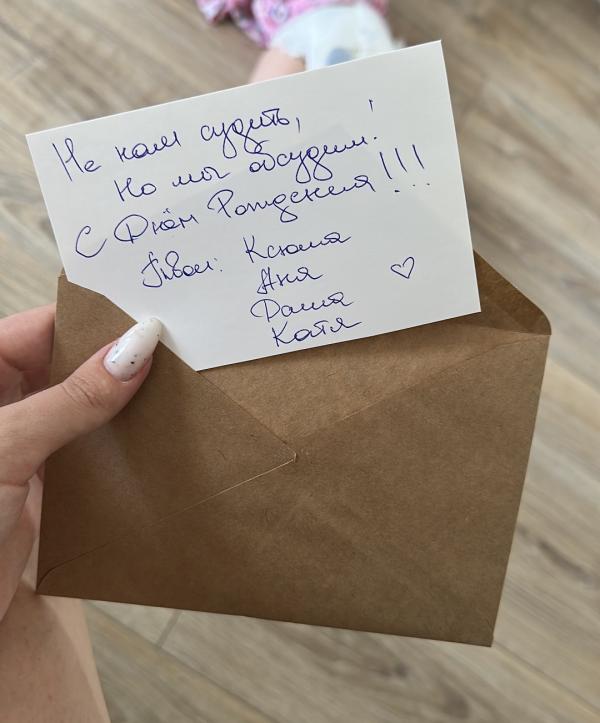 Не нам судить,
Но мы обсудим!
С Днём Рождения!!!
Твои: Ксюша
Аня
Даша
Катя